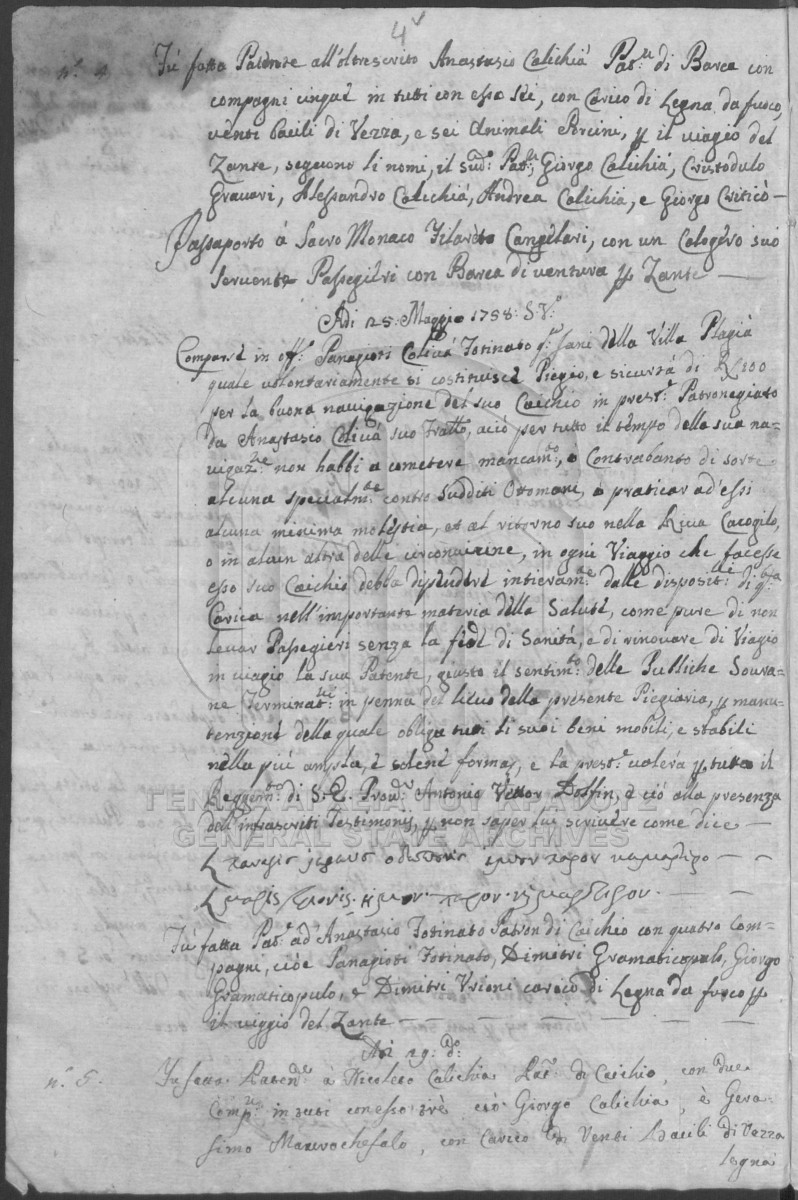 4v
n.º 4 Fù fatta Patente all'oltrescrito Anastasio Calichiá Pat.n di Barca con
compagni cinque in tutti con esso sei, con Carico di Legna da fuoco,
venti bacili di Vezza, e sei Animali Porcini, p il viagio del
Zante, seguono li nomi, il sud.º Pat.n, Giorgo Calichiá, Cristodulo
Gravari, Alessandro Calichiá, Andrea Calichia, e Giorgo Criticò —
Passaporto á Sacro Monaco Filareto Cangelari, con un Calogero suo
servente Passegieri con Barca di ventura p Zante —
Adi 25. Maggio 1758. S.V.º
Comparse in off.º Panagioti Calivá Fotinato q.m Jani della Villa Plagiá
quale volontariamente si costituisce Piegio, e sicurtá di R 300
per la buona navigazione del suo Caichio in prest.e Patronegiato
da Anastasio Calivá suo Fratto, acció per tutto il tempo della sua na=
vigaz.ne non habbi a cometere mancam.to, o Contrabanto di sorte
alcuna specialm.te contro sudditi Ottomani, o praticar ad'essi
alcuna minima molestia, et al ritorno suo nella Riva Cacogilo,
o in alcun altra delle circonvicine, in ogni Viaggio che facesse
esso suo Caichio debba dipendere intieram.te dalle disposit.ni di q.sta
Carica nell'importante materia della Salute, come pure di non
levar Passegieri senza la fede di Sanitá, e di rinovare di Viagio
in viagio la sua Patente, giusto il sentim.to delle Publiche Sovra=
ne Terminat.ni in penna del lievo della presente Piegiaria, p manu=
tenzione della quale obliga tutti li suoi beni mobili, e stabili
nella piú ampla, è solene forma, e la prest.e valerá p tutto il
Reggem.to di S. E. Prov.r Antonio Vettor Dolfin, e ció alla presenza
dell'infrascriti Testimonij, p non saper lui scrivere come dice —
παρον μαρτιρο — —
παρον
Fù fatta Pat.e ad'Anastasio Fotinato Patron di Caichio con quatro com=
pagni, cióe Panagioti Fotinato, Dimitri Gramaticopulo, Giorgo
Gramaticopulo, e Dimitri Vrioni careco di Legna da fuoco p
il viggio del Zante — — — —
Adi 29. d.º
n.º 5. Fu fatta Patente à Nicoleto Calichia Pat.n di Caichio, con due
Comp.ni in tutti con esso trè ciò Giorgo Calichia, è Gera=
simo Maurochefalo, con Carico di Venti Bacili di Vezza
legna
ΓΕΝΙΚΑ ΑΡΧΕΙΑ ΤΟΥ ΚΡΑΤΟΥΣ
GENERAL STATE ARCHIVES